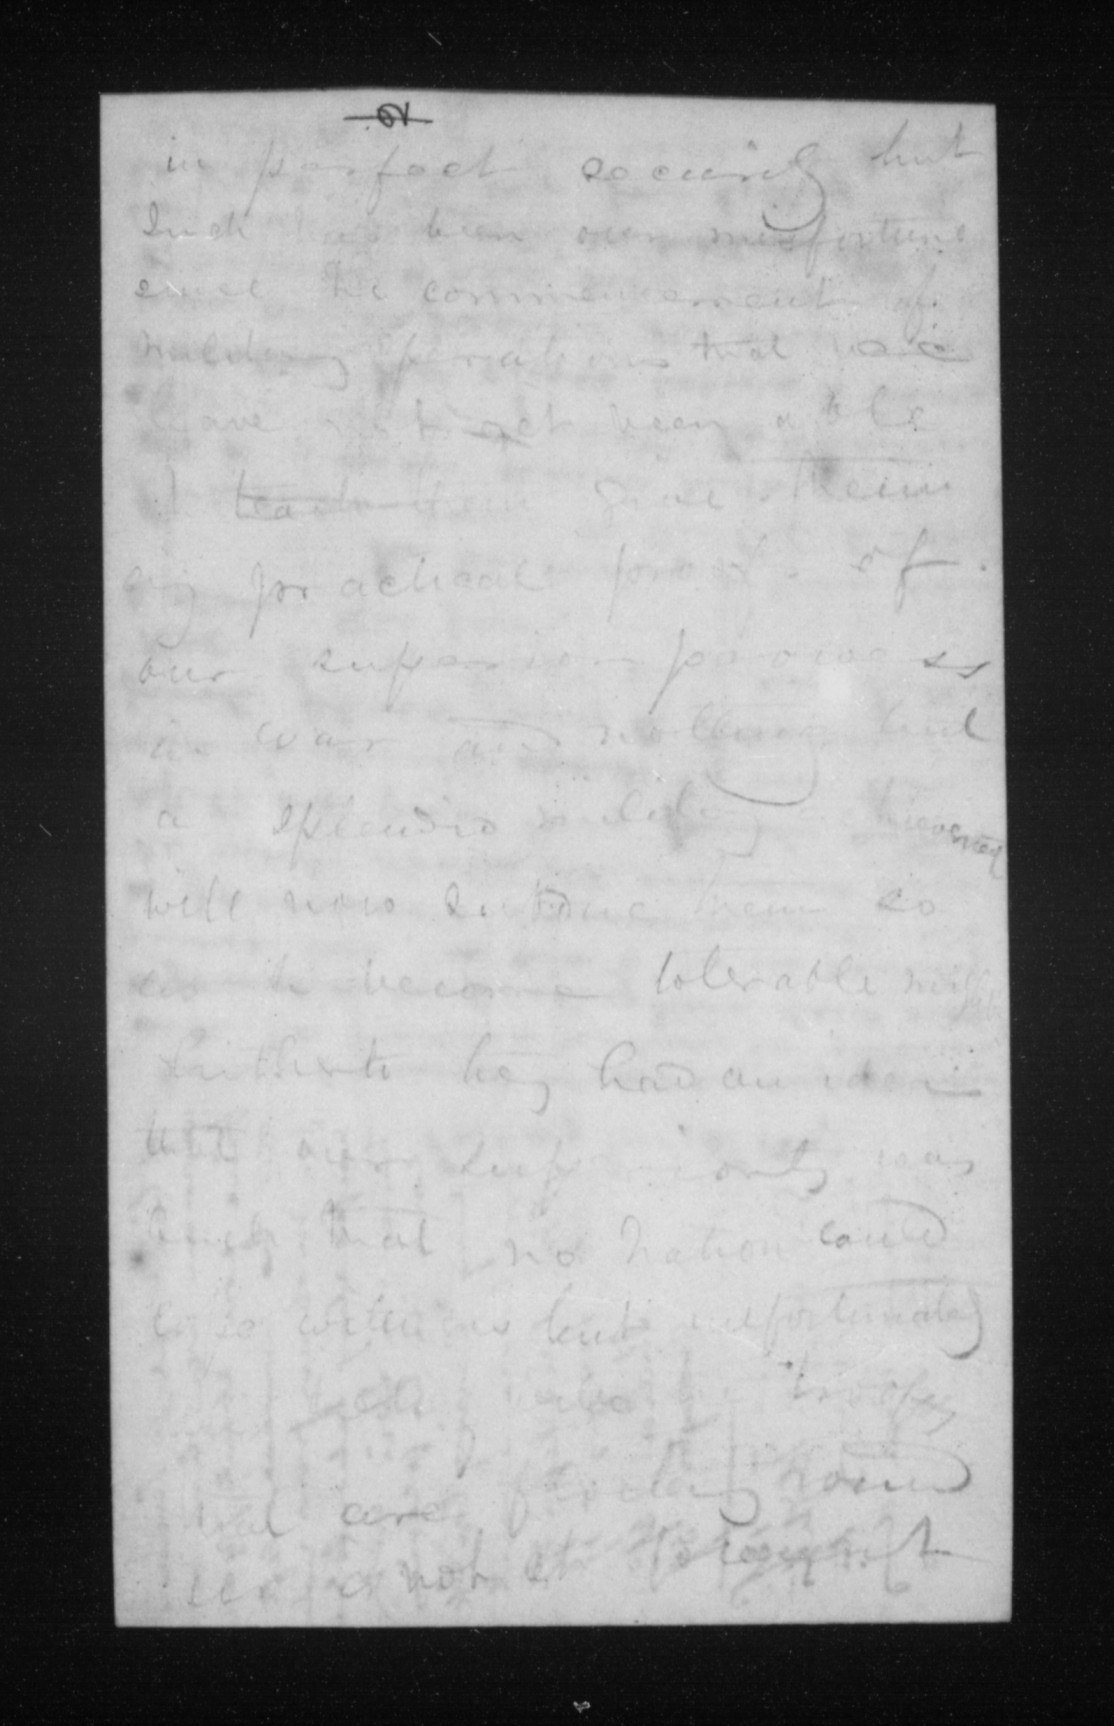 in perfect security but
Such has been our misfortune
since the commencement of
military operations that we
have not yet been able
to teach them give them
any practical proofs of
our superior prowess
in war and nothing but
a splendid military achievement
will now subdue them so
as to become tolerable
hitherto they had an idea
that our superiority was
such that no nation could
cope with us but unfortunately
troops
that are
not